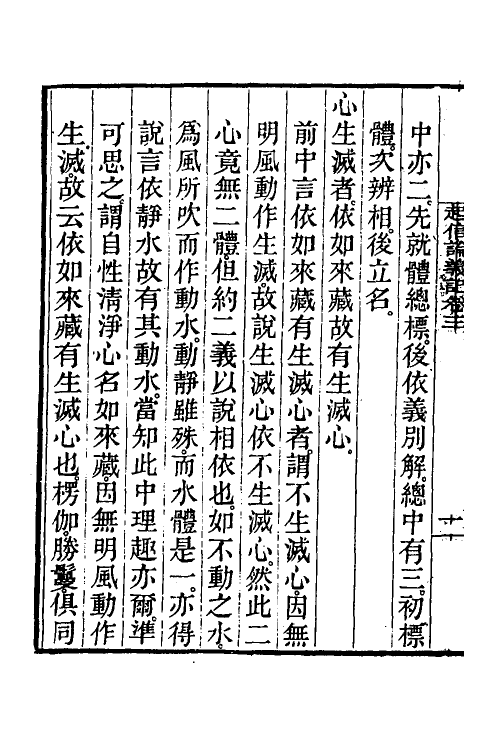 起信論義記卷三
十一
中亦二。先就體總標。後依義別解。總中有三。初標
體。次辨相。後立名。
心生滅者。依如來藏故有生滅心。
前中言依如來藏有生滅心者。謂不生滅心。因無
明風動作生滅。故說生滅心依不生滅心。然此二
心竟無二體。但約二義以說相依也。如不動之水。
為風所吹而作動水。動靜雖殊。而水體是一。亦得
說言依靜水故有其動水。當知此中理趣亦爾。準
可思之。謂自性清淨心名如來藏。因無明風動作
生滅。故云依如來藏有生滅心也。楞伽。勝鬘。俱同